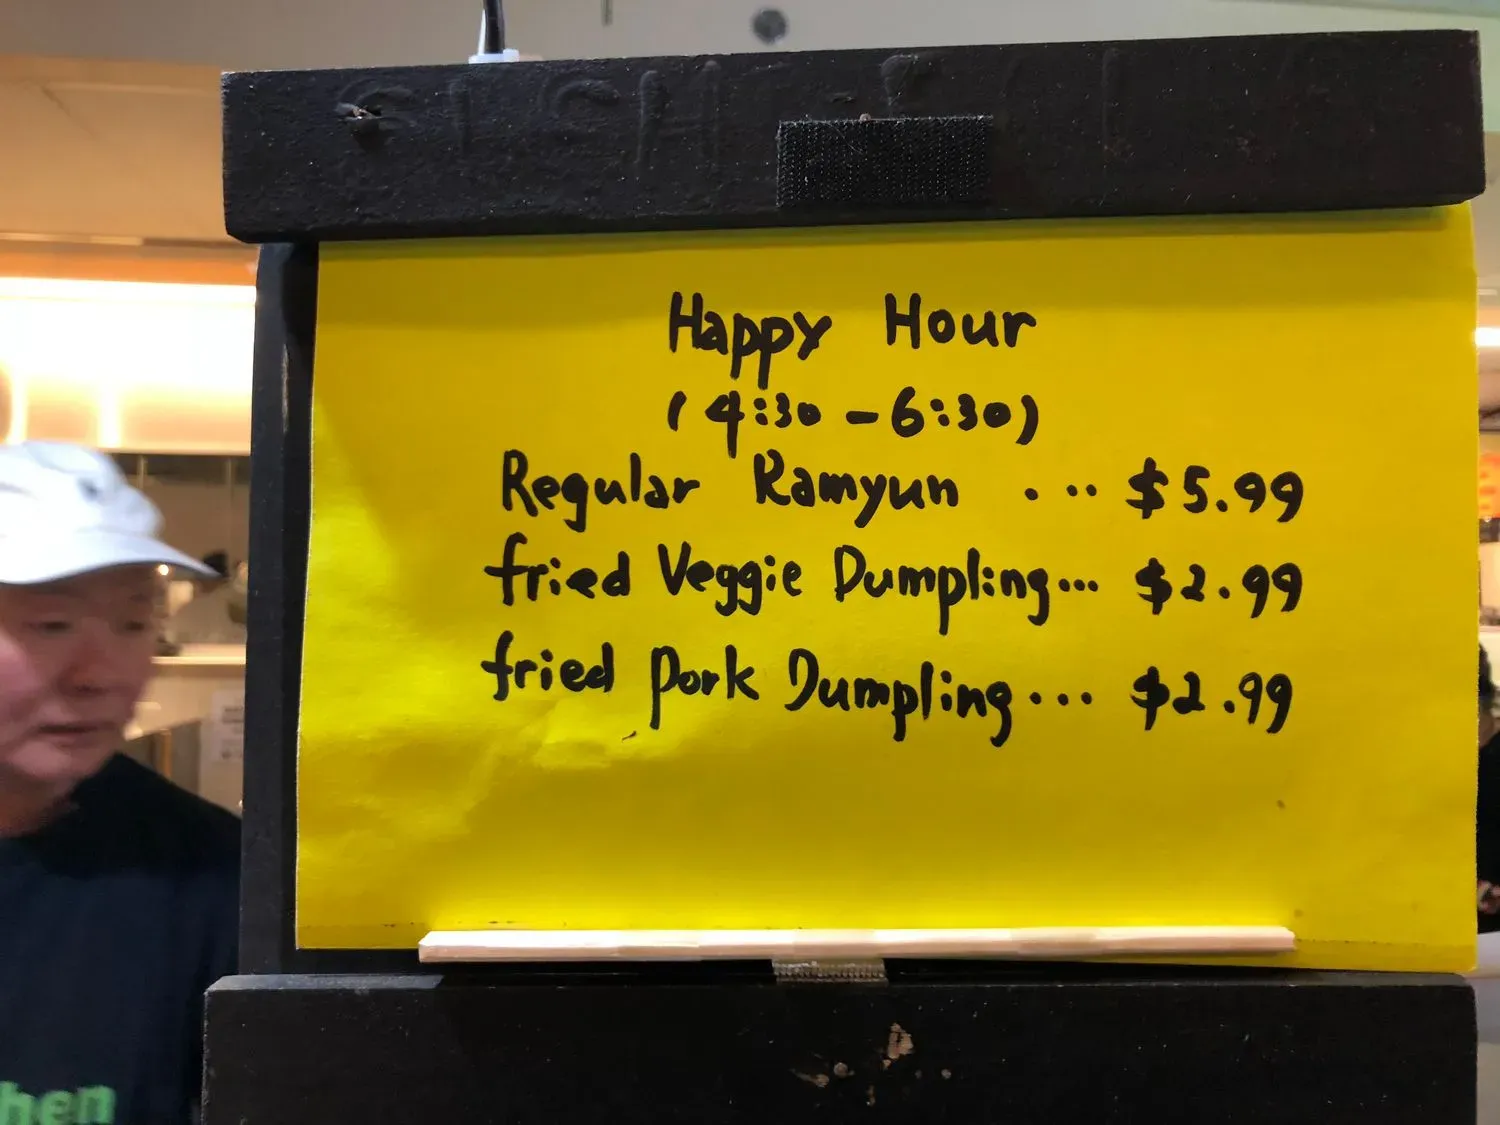 Happy Hour
(4:30 - 6:30)
Regular Ramyun ... $5.99
fried Veggie Dumpling... $2.99
fried Pork Dumpling... $2.99
hen